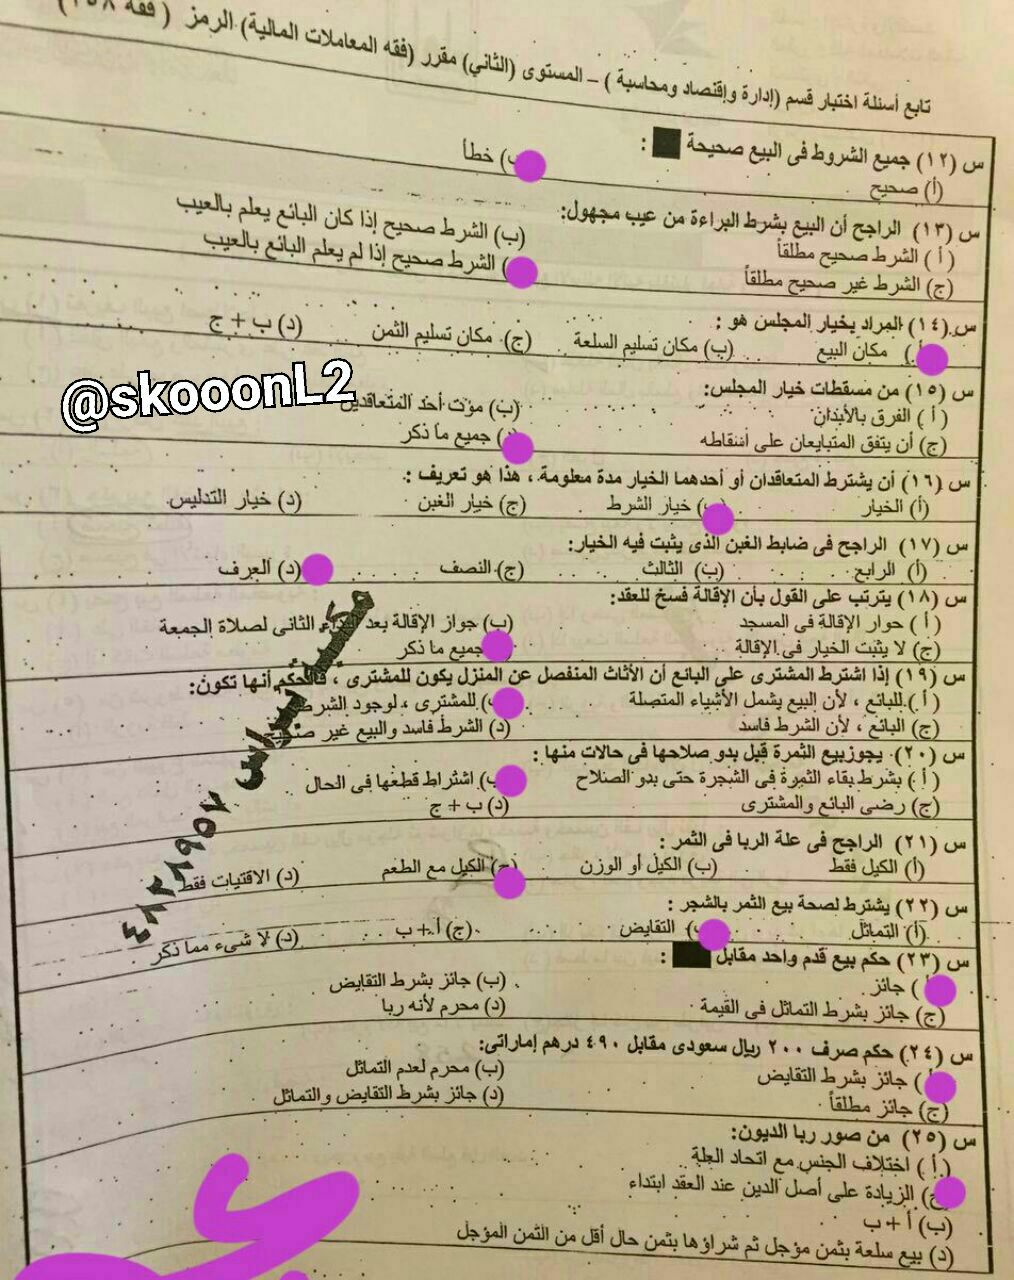 تابع أسئلة اختبار قسم (إدارة وإقتصاد ومحاسبة ) – المستوى (الثاني) مقرر (فقه المعاملات المالية) الرمز ( فقه
س (١٢) جميع الشروط فى البيع صحيحة :
(أ) صحيح ) خطأ
س (١٣) الراجح أن البيع بشرط البراءة من عيب مجهول:
(أ ) الشرط صحيح مطلقاً (ب) الشرط صحيح إذا كان البائع يعلم بالعيب
(ج) الشرط غير صحيح مطلقاً ) الشرط صحيح إذا لم يعلم البائع بالعيب
س (١٤) المراد بخيار المجلس هو :
) مكان البيع (ب) مكان تسليم السلعة (ج) مكان تسليم الثمن (د) ب + ج
@skooonL2
س (١٥) من مسقطات خيار المجلس:
(أ ) الفرق بالأبدان (ب) موت أحد المتعاقدين
(ج) أن يتفق المتبايعان على اسقاطه ) جميع ما ذكر
س (١٦) أن يشترط المتعاقدان أو أحدهما الخيار مدة معلومة ، هذا هو تعريف :
(أ) الخيار ) خيار الشرط (ج) خيار الغبن (د) خيار التدليس
س (١٧) الراجح فى ضابط الغبن الذى يثبت فيه الخيار:
(أ) الرابع (ب) الثالث (ج) النصف (د) العرف
س (١٨) يترتب على القول بأن الإقالة فسخ للعقد:
(أ ) حوار الإقالة فى المسجد (ب) جواز الإقالة بعد الثانى لصلاة الجمعة
(ج) لا يثبت الخيار فى الإقالة جميع ما ذكر
س (١٩) إذا اشترط المشترى على البائع أن الأثاث المنفصل عن المنزل يكون للمشترى ، فالحكم أنها تكون:
(أ ) للبائع ، لأن البيع يشمل الأشياء المتصلة ) للمشترى ، لوجود الشرط
(ج) البائع ، لأن الشرط فاسد (د) الشرط فاسد والبيع غير
س (٢٠) يجوزبيع الثمرة قبل بدو صلاحها فى حالات منها :
(أ ) بشرط بقاء الثمرة فى الشجرة حتى بدو الصلاح ) اشتراط قطعها فى الحال
(ج) رضى البائع والمشترى (د) ب + ج
س (٢١) الراجح فى علة الربا فى الثمر :
(أ) الكيل فقط (ب) الكيل أو الوزن (ج) الكيل مع الطعم (د) الاقتيات فقط
س (٢٢) يشترط لصحة بيع الثمر بالشجر :
(أ) التماثل ) التقايض (ج) أ + ب (د) لا شىء مما ذكر
س (٢٣) حكم بيع قدم واحد مقابل :
) جائز (ب) جائز بشرط التقايض
(ج) جائز بشرط التماثل فى القيمة (د) محرم لأنه ربا
س (٢٤) حكم صرف ٢٠٠ ريال سعودى مقابل ٤٩٠ درهم إماراتى:
) جائز بشرط التقايض (ب) محرم لعدم التماثل
(ج) جائز مطلقاً (د) جائز بشرط التقايض والتماثل
س (٢٥) من صور ربا الديون:
(أ ) اختلاف الجنس مع اتحاد العلة
) الزيادة على أصل الدين عند العقد ابتداء
(ب) أ + ب
(د) بيع سلعة بثمن مؤجل ثم شراؤها بثمن حال أقل من الثمن المؤجل